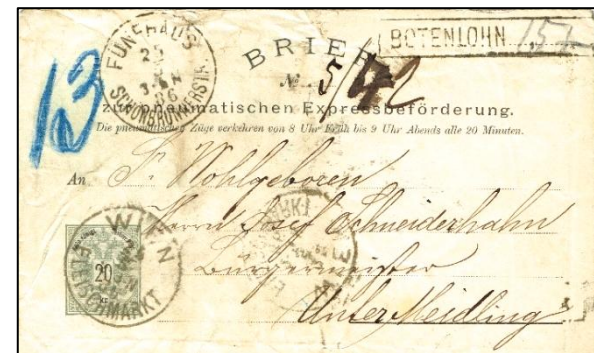 BRIEF
BOTENLOHN 15
FÜNFHAUS
25
86
SCHÖNBRUNNERSTR.
№ 5/42
13
zur pneumatischen Expressbeförderung.
Die pneumatischen Züge verkehren von 8 Uhr Früh bis 9 Uhr Abends alle 20 Minuten.
An Sr Wohlgeboren
Herrn Josef Schneiderhahn
Bürgermeister
Unter Meidling
WIEN
20
FLEISCHMARKT